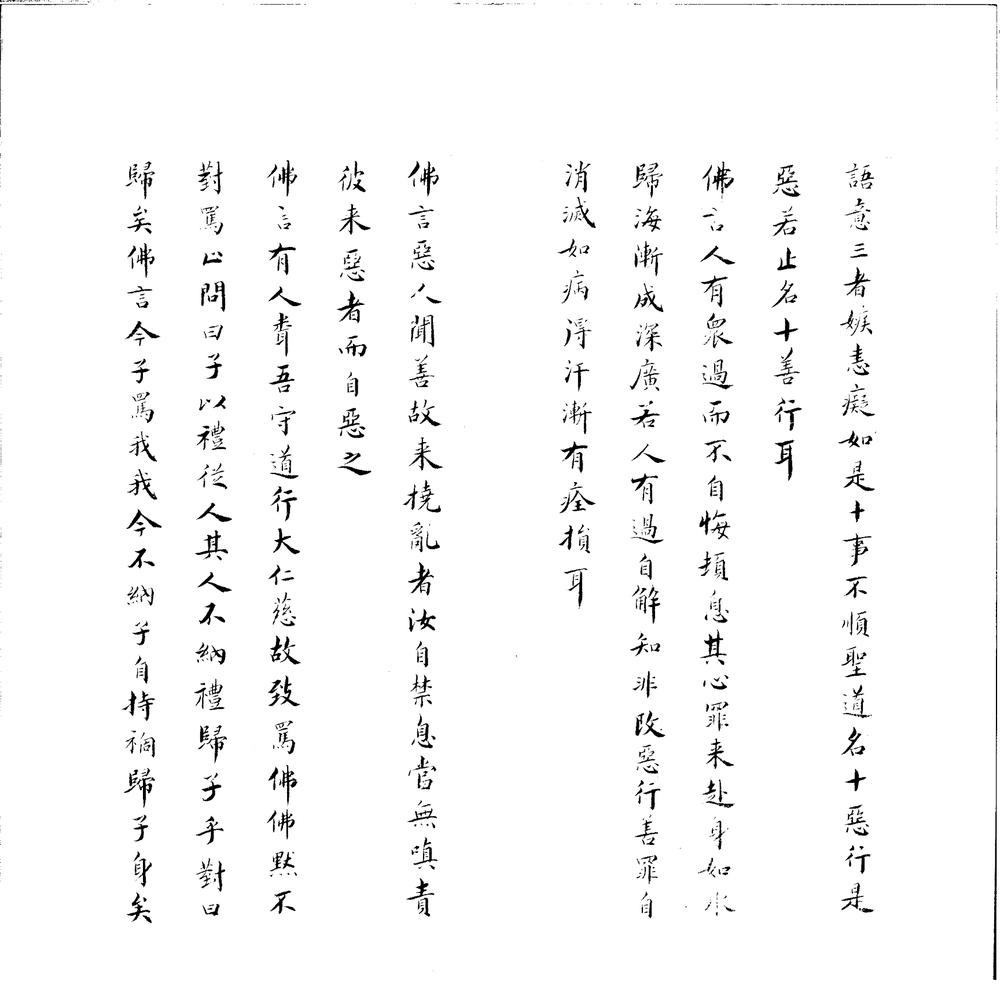 語意三者嫉恚癡如是十事不順聖道名十惡行是
惡若止名十善行耳
佛言人有衆過而不自悔頓息其心罪来赴身如水
歸海漸成深廣若人有過自解知非改惡行善罪自
消滅如病得汗漸有痊損耳
佛言惡人聞善故来撓亂者汝自禁息當無嗔責
彼来惡者而自惡之
佛言有人聞吾守道行大仁慈故致罵佛佛默不
對罵止問曰子以禮從人其人不納禮歸子乎對曰
歸矣佛言今子罵我我今不納子自持禍歸子身矣